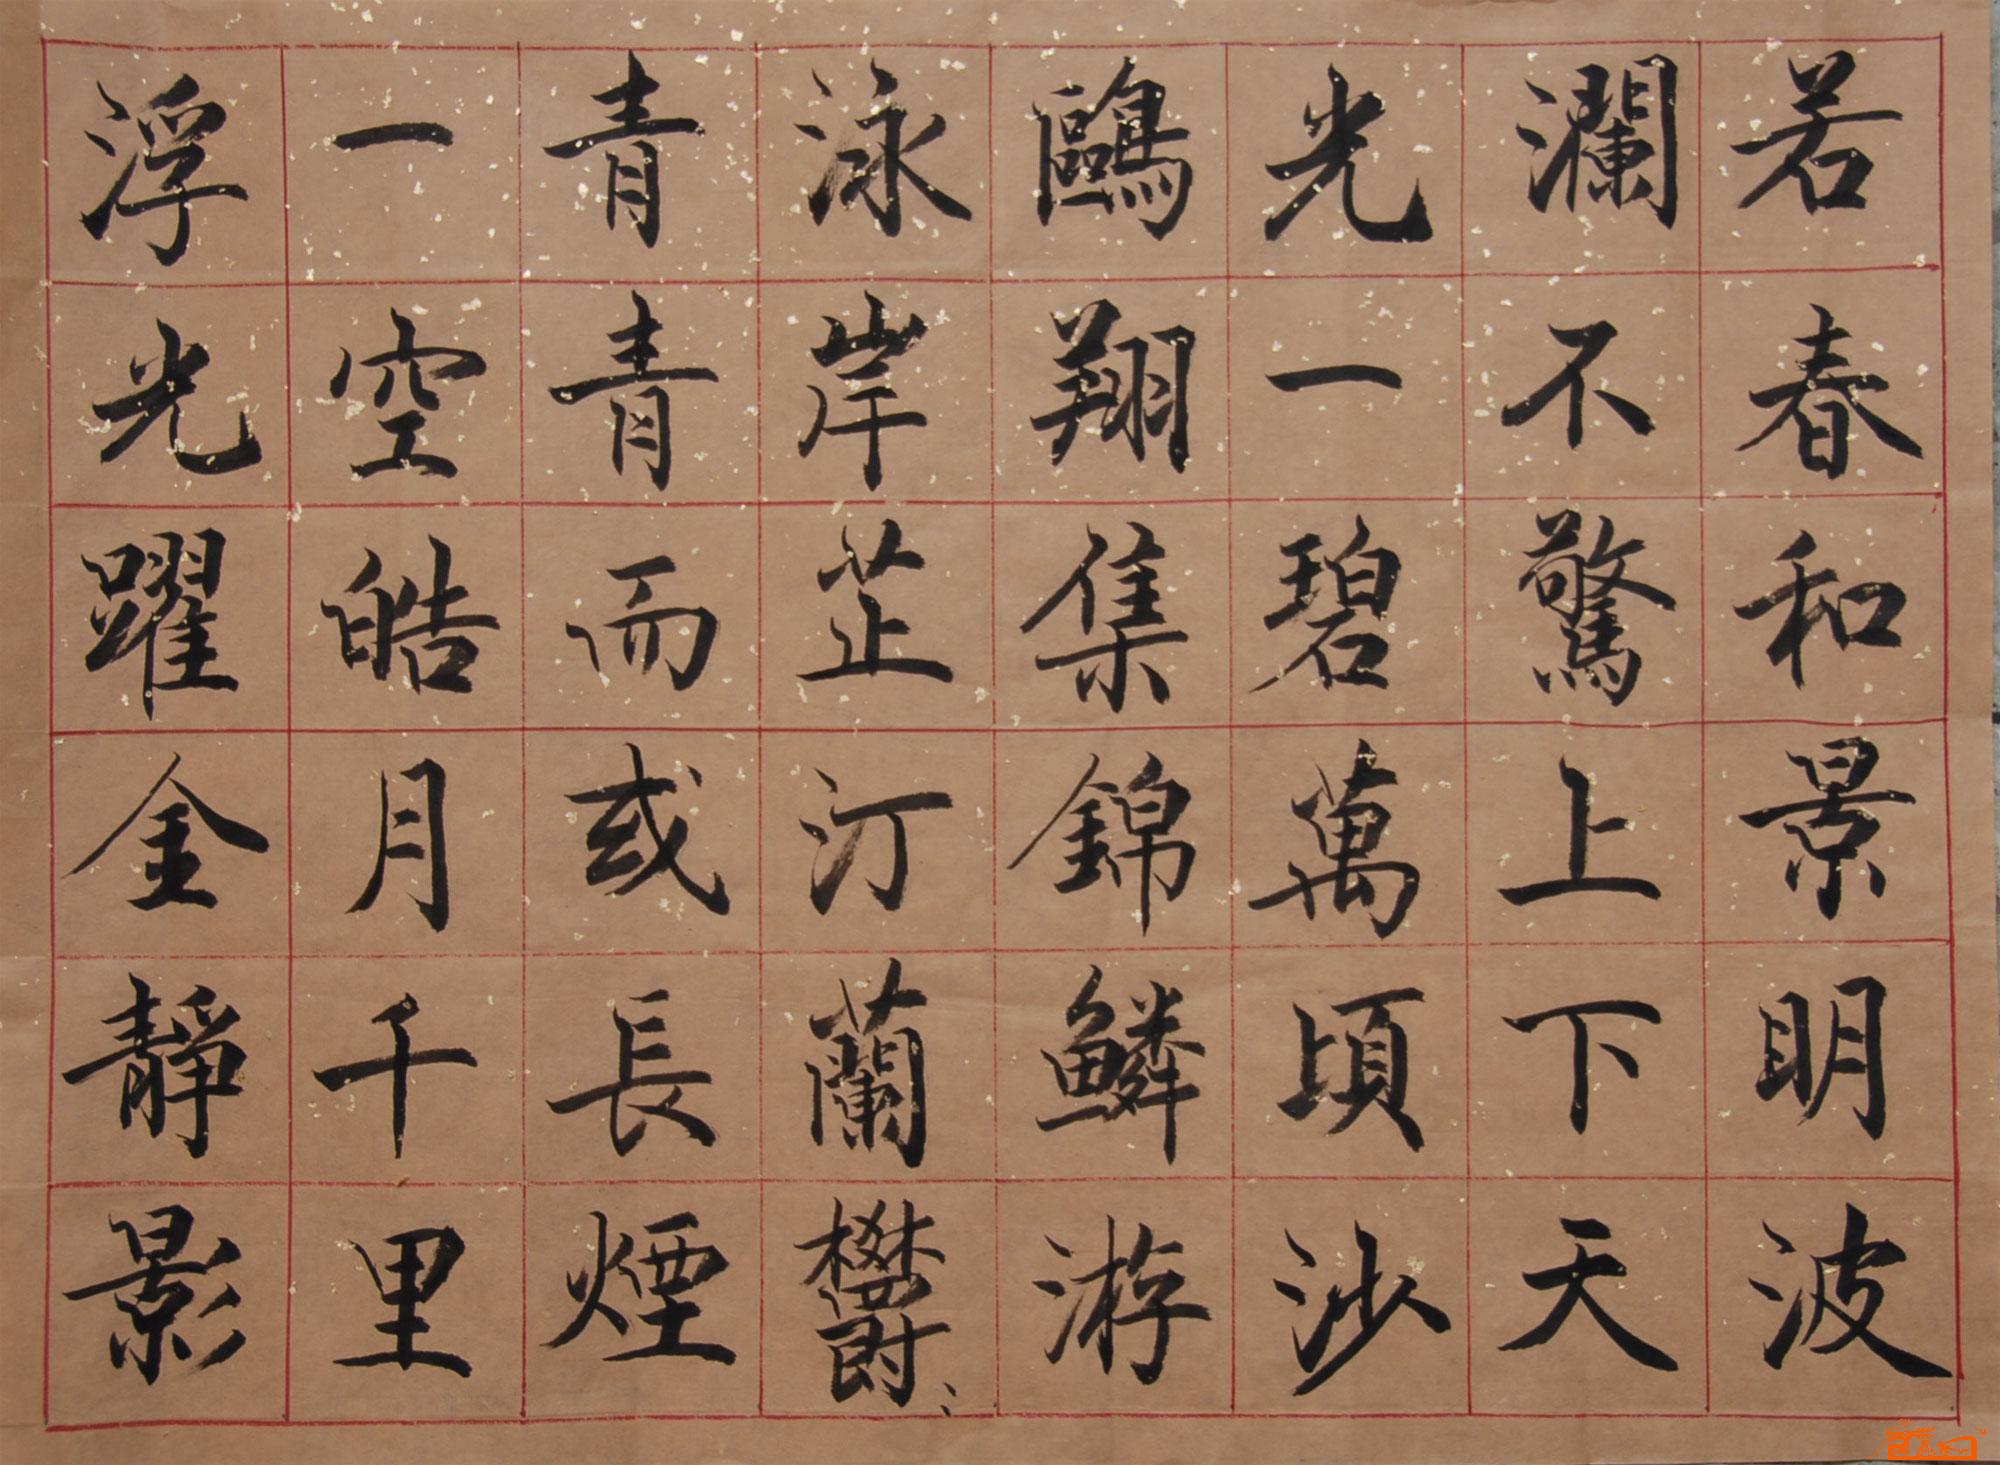 若春和景明波
瀾不驚上下天
光一碧萬頃沙
鷗翔集錦鱗游
泳岸芷汀蘭鬱〻
青青而或長煙
一空皓月千里
浮光躍金靜影